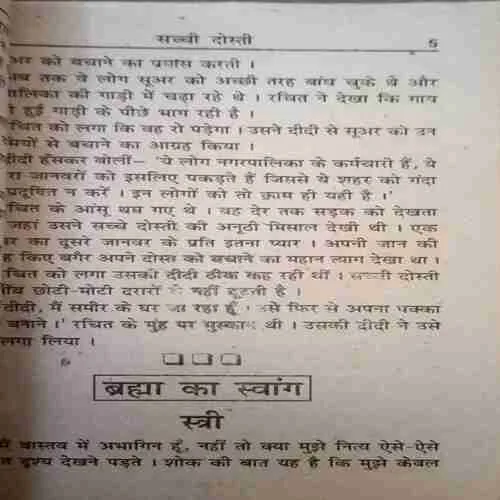 सच्ची दोस्ती 5
अर को बचाने का प्रयास करती ।
अब तक वे लोग सूअर को अच्छी तरह बांध चुके थे और
पालिका की गाड़ी में चढ़ा रहे थे । रचित ने देखा कि गाय
हुई गाड़ी के पीछे भाग रही है ।
चित को लगा कि वह रो पड़ेगा । उसने दीदी से सूअर को उन
से बचाने का आग्रह किया ।
दीदी हंसकर बोलीं– 'ये लोग नगरपालिका के कर्मचारी हैं, ये
रा जानवरों को इसलिए पकड़ते हैं जिससे ये शहर को गंदा
प्रदूषित न करें । इन लोगों को तो काम ही यही है ।'
चित के आंसू थम गए थे । वह देर तक सड़क को देखता
जहां उसने सच्चे दोस्तो की अनूठी मिसाल देखी थी । एक
र का दूसरे जानवर के प्रति इतना प्यार । अपनी जान की
ह किए बगैर अपने दोस्त को बचाने का महान त्याग देखा था ।
चित को लगा उसकी दीदी ठीक कह रही थीं । सच्ची दोस्ती
छोटी-मोटी दरारों से नहीं टूटती है ।
दीदी, मैं समीर के घर जा रहा हूँ । उसे फिर से अपना पक्का
बनाने ।' रचित के मुंह पर मुस्कान थी । उसकी दीदी ने उसे
लगा लिया ।
ब्रह्मा का स्वांग
स्त्री
मैं वास्तव में अभागिन हूँ, नहीं तो क्या मुझे नित्य ऐसे-ऐसे
त दृश्य देखने पड़ते । शोक की बात यह है कि मुझे केवल